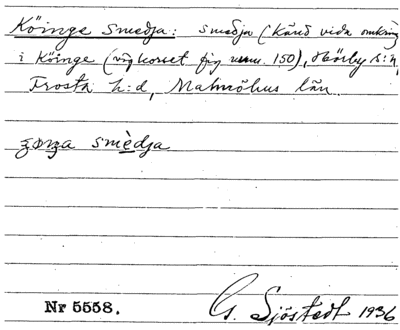 Köinge smedja: smedja (Känd vida omkring
i Köinge (vägkorset fig num. 150), Hörby s:n,
Frosta h:d, Malmöhus län.
smèdja
Nr 5558. G. Sjöstedt 1936